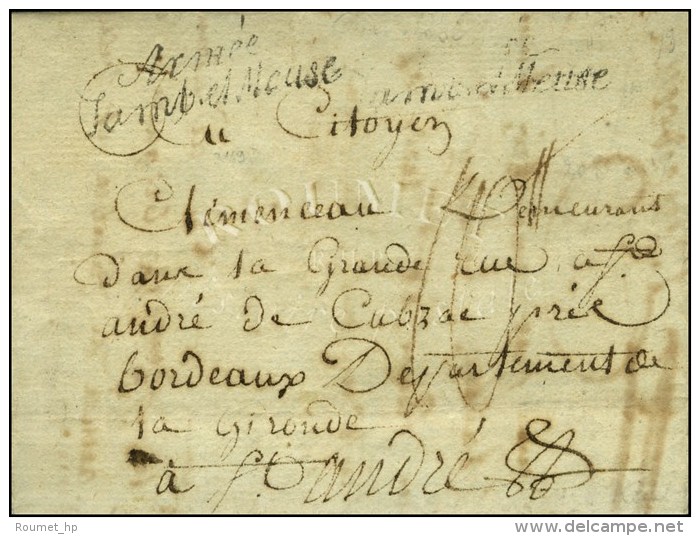 Armée
Samb. et Meuse
amb. et Meuse
Au Citoyen
Clémenceau Demeurant
dans la Grande rue a St
andré de Cubzac près
bordeaux Departement de
la Gironde
à St. andré
ROUMET
Roumet_hp
© delcampe.net